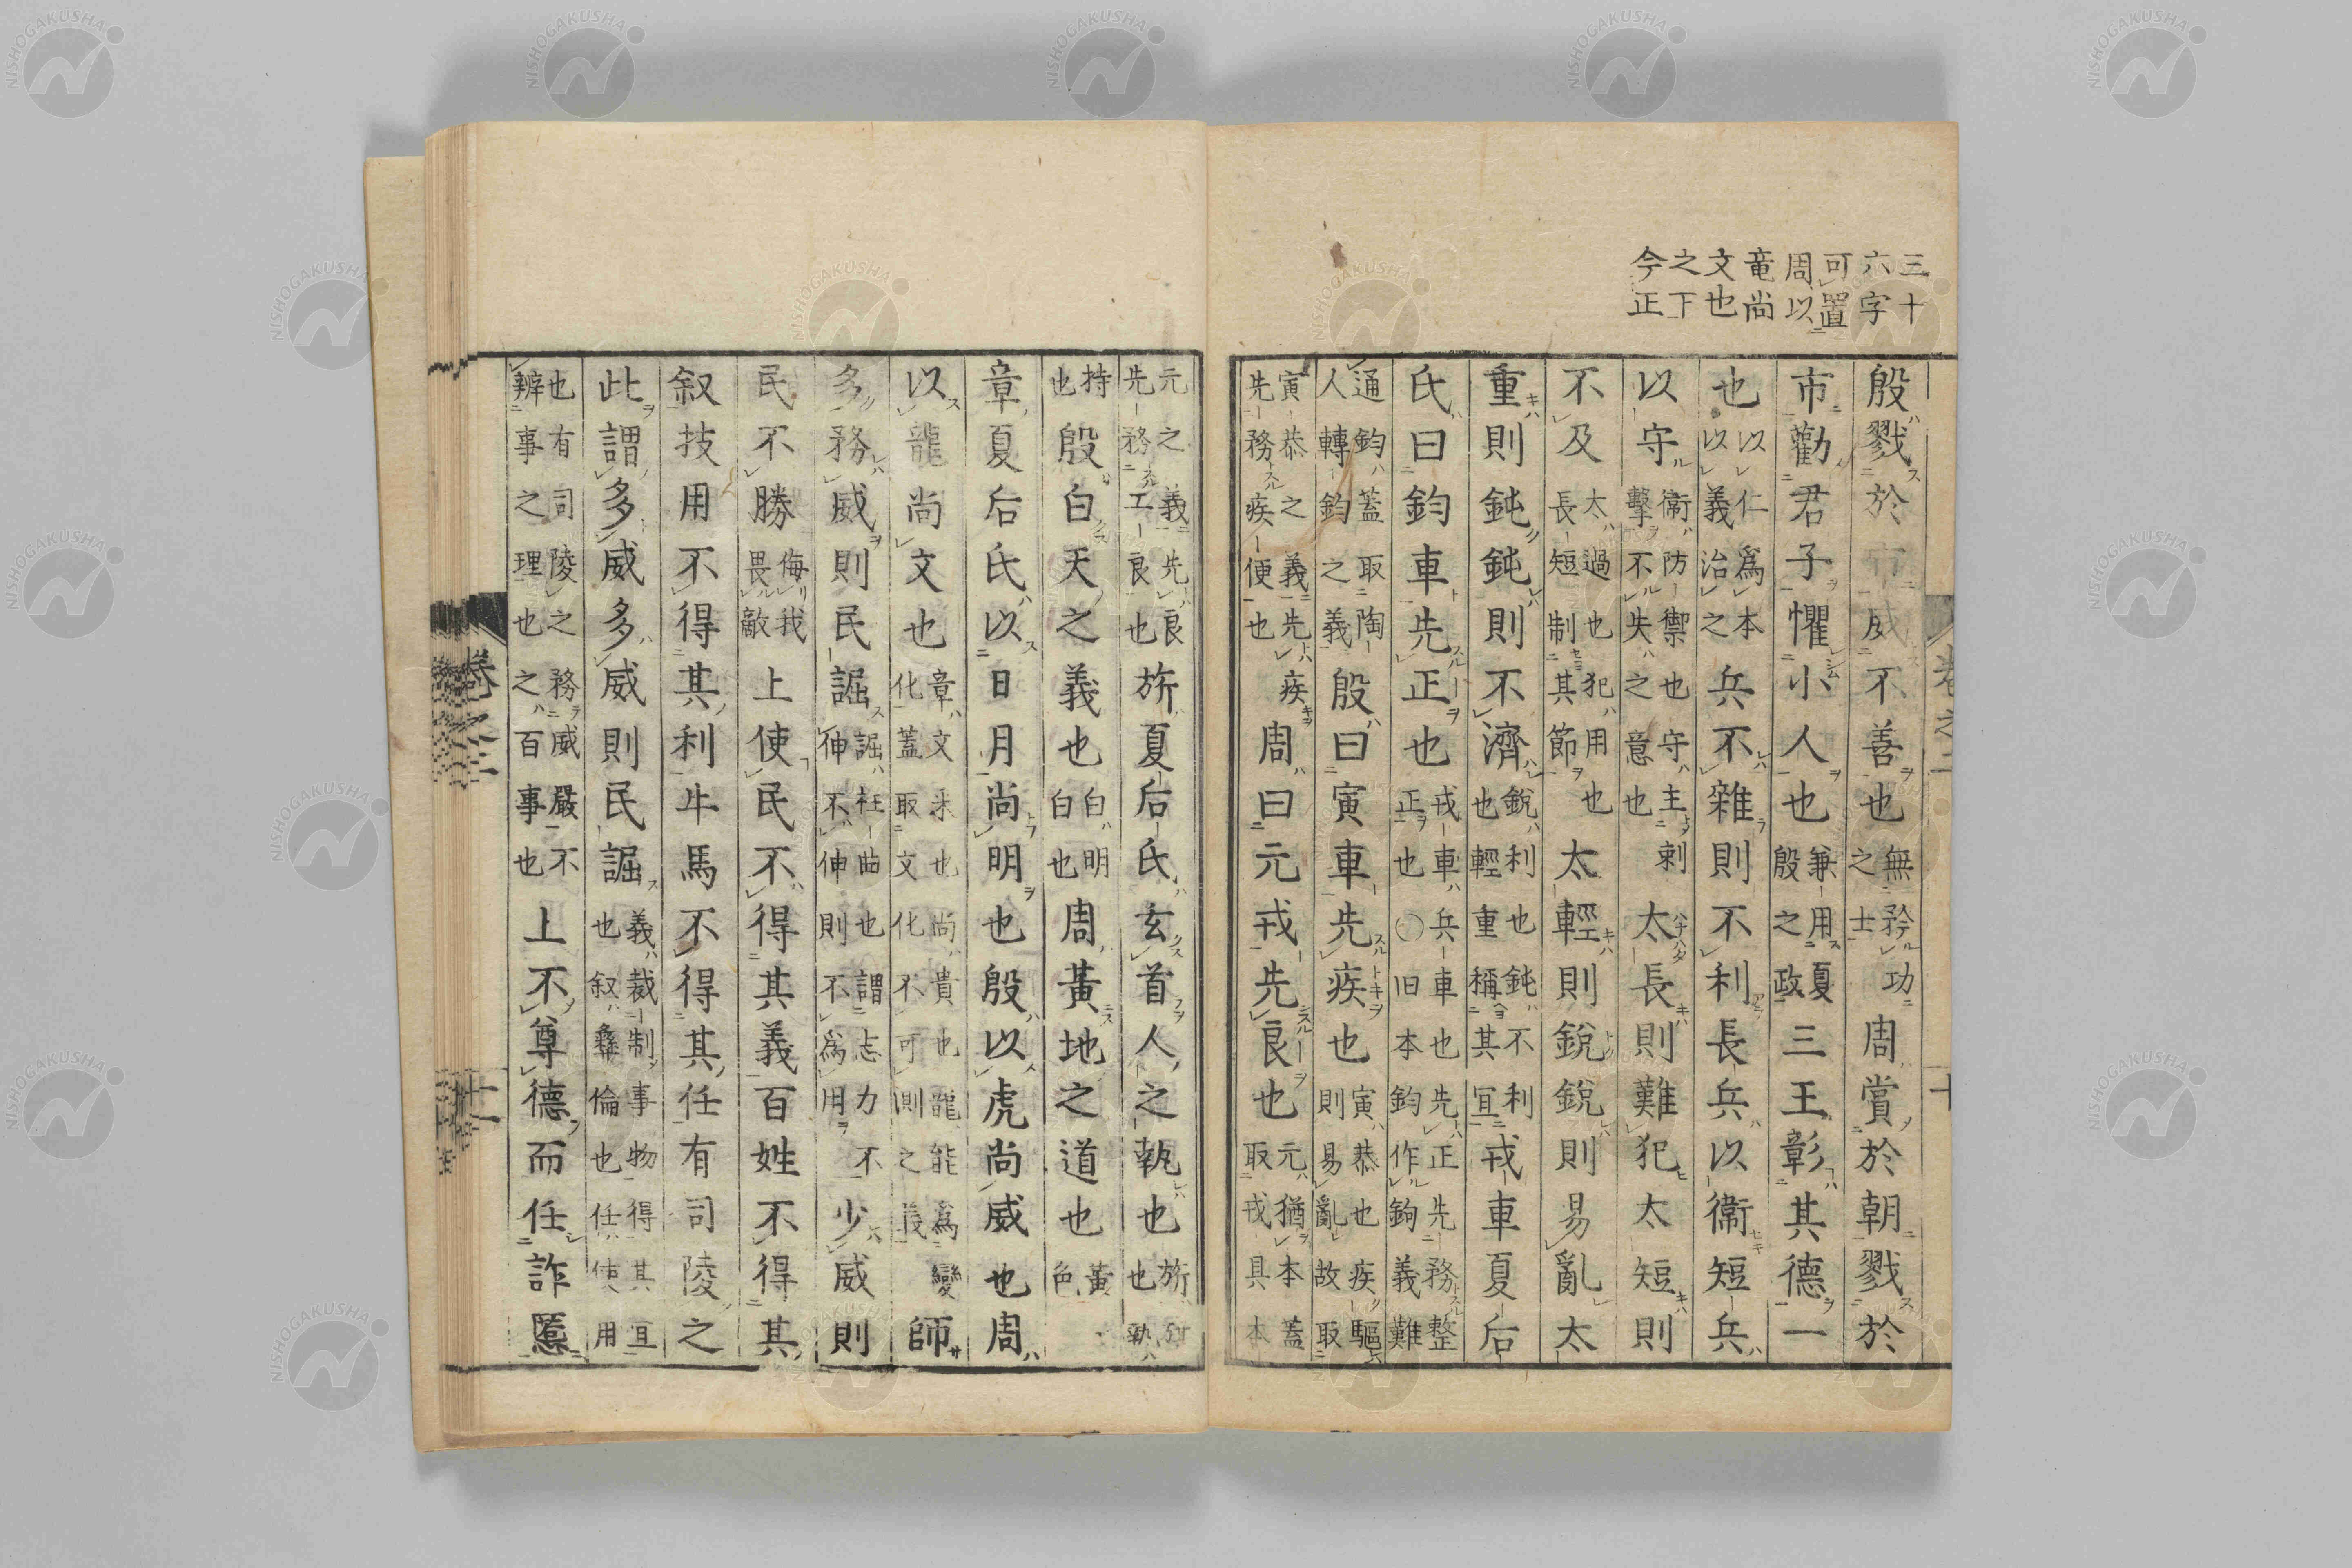 三十
六字
可置
周以
竜尚
文也
之下
今正
殷戮於市威不善也無矜功之士周賞於朝戮於
市勸君子懼小人也兼用夏殷之政三王彰其德一
也以仁爲本以義治之兵不雜則不利長兵以衞短兵
以守衞防禦也守主刺擊不失之意也太長則難犯太短則
不及太過也犯用也長短制其節太輕則銳銳則易亂太
重則鈍鈍則不濟銳利也鈍不利也輕重稱其宜戎車夏后
氏曰鈞車先正也戎車兵車也先正先務整正也〇旧本鈞作鉤義難
通鈞蓋取陶人轉鈞之義殷曰寅車先疾也寅恭也疾驅則易亂故取
寅恭之義先疾先務疾便也周曰元戎先良也元猶本蓋取戎具本
卷之二 十
元之義先良先務工良也旂夏后氏玄首人之執也旂也執
持也殷白天之義也白明白也周黃地之道也黃色
章夏后氏以日月尚明也殷以虎尚威也周
以龍尚文也章文采也尚貴也龍能爲變化蓋取文化不可則之義師
多務威則民詘詘枉曲也謂志力不伸不伸則不爲用少威則
民不勝侮我畏敵上使民不得其義百姓不得其
叙技用不得其利牛馬不得其任有司陵之
此謂多威多威則民詘義裁制事物得其宜也叙彝倫也任使用
也有司陵之務威嚴不辨事之理也之百事也上不尊德而任詐慝
卷之二 十一